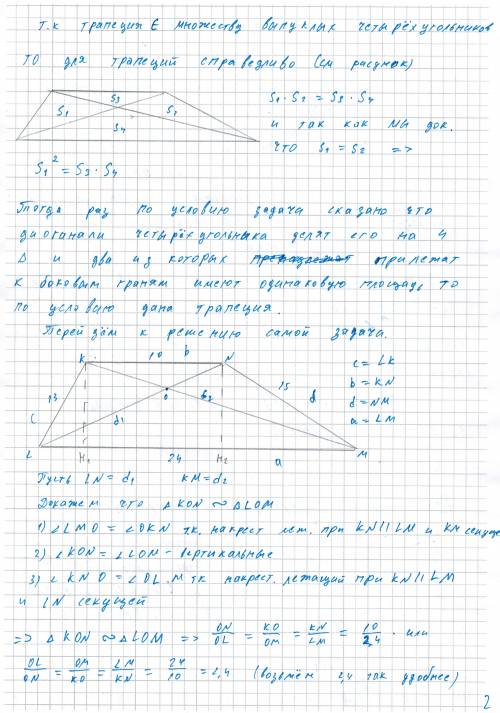 т.к трапеция ∈ множеству выпуклых четырёхугольников
то для трапеций справедливо (см рисунок)
S₃
S₁
S₂
S₄
S₁ · S₂ = S₃ · S₄
и так как мы док.
что S₁ = S₂ =>
S₁² = S₃ · S₄
Тогда раз по условию задача сказано что
диоганали четырёхугольника делят его на 4
Δ и два из которых прилежат
к боковым граням имеют одинаковую площадь то
по условию дана трапеция.
Перейдём к решению самой задача.
K 10 b N
13
c
O
d₂
15
d
d₁
L H₁ 24 H₂ a M
c = LK
b = KN
d = NM
a = LM
Пусть LN = d₁ KM = d₂
Докажем что Δ KON ∾ Δ LOM
1) ∠LMO = ∠OKN т.к. накрест леж. при KN || LM и KM секущей
2) ∠KON = ∠LOM - вертикальные
3) ∠KNO = ∠OLM тк накрест. лежащий при KN || LM
и LN секущей
=> Δ KON ∾ Δ LOM => ON/OL = KO/OM = KN/LM = 10/24 · или
OL/ON = OM/KO = LM/KN = 24/10 = 2,4 (возьмём 2,4 так удобнее)
2